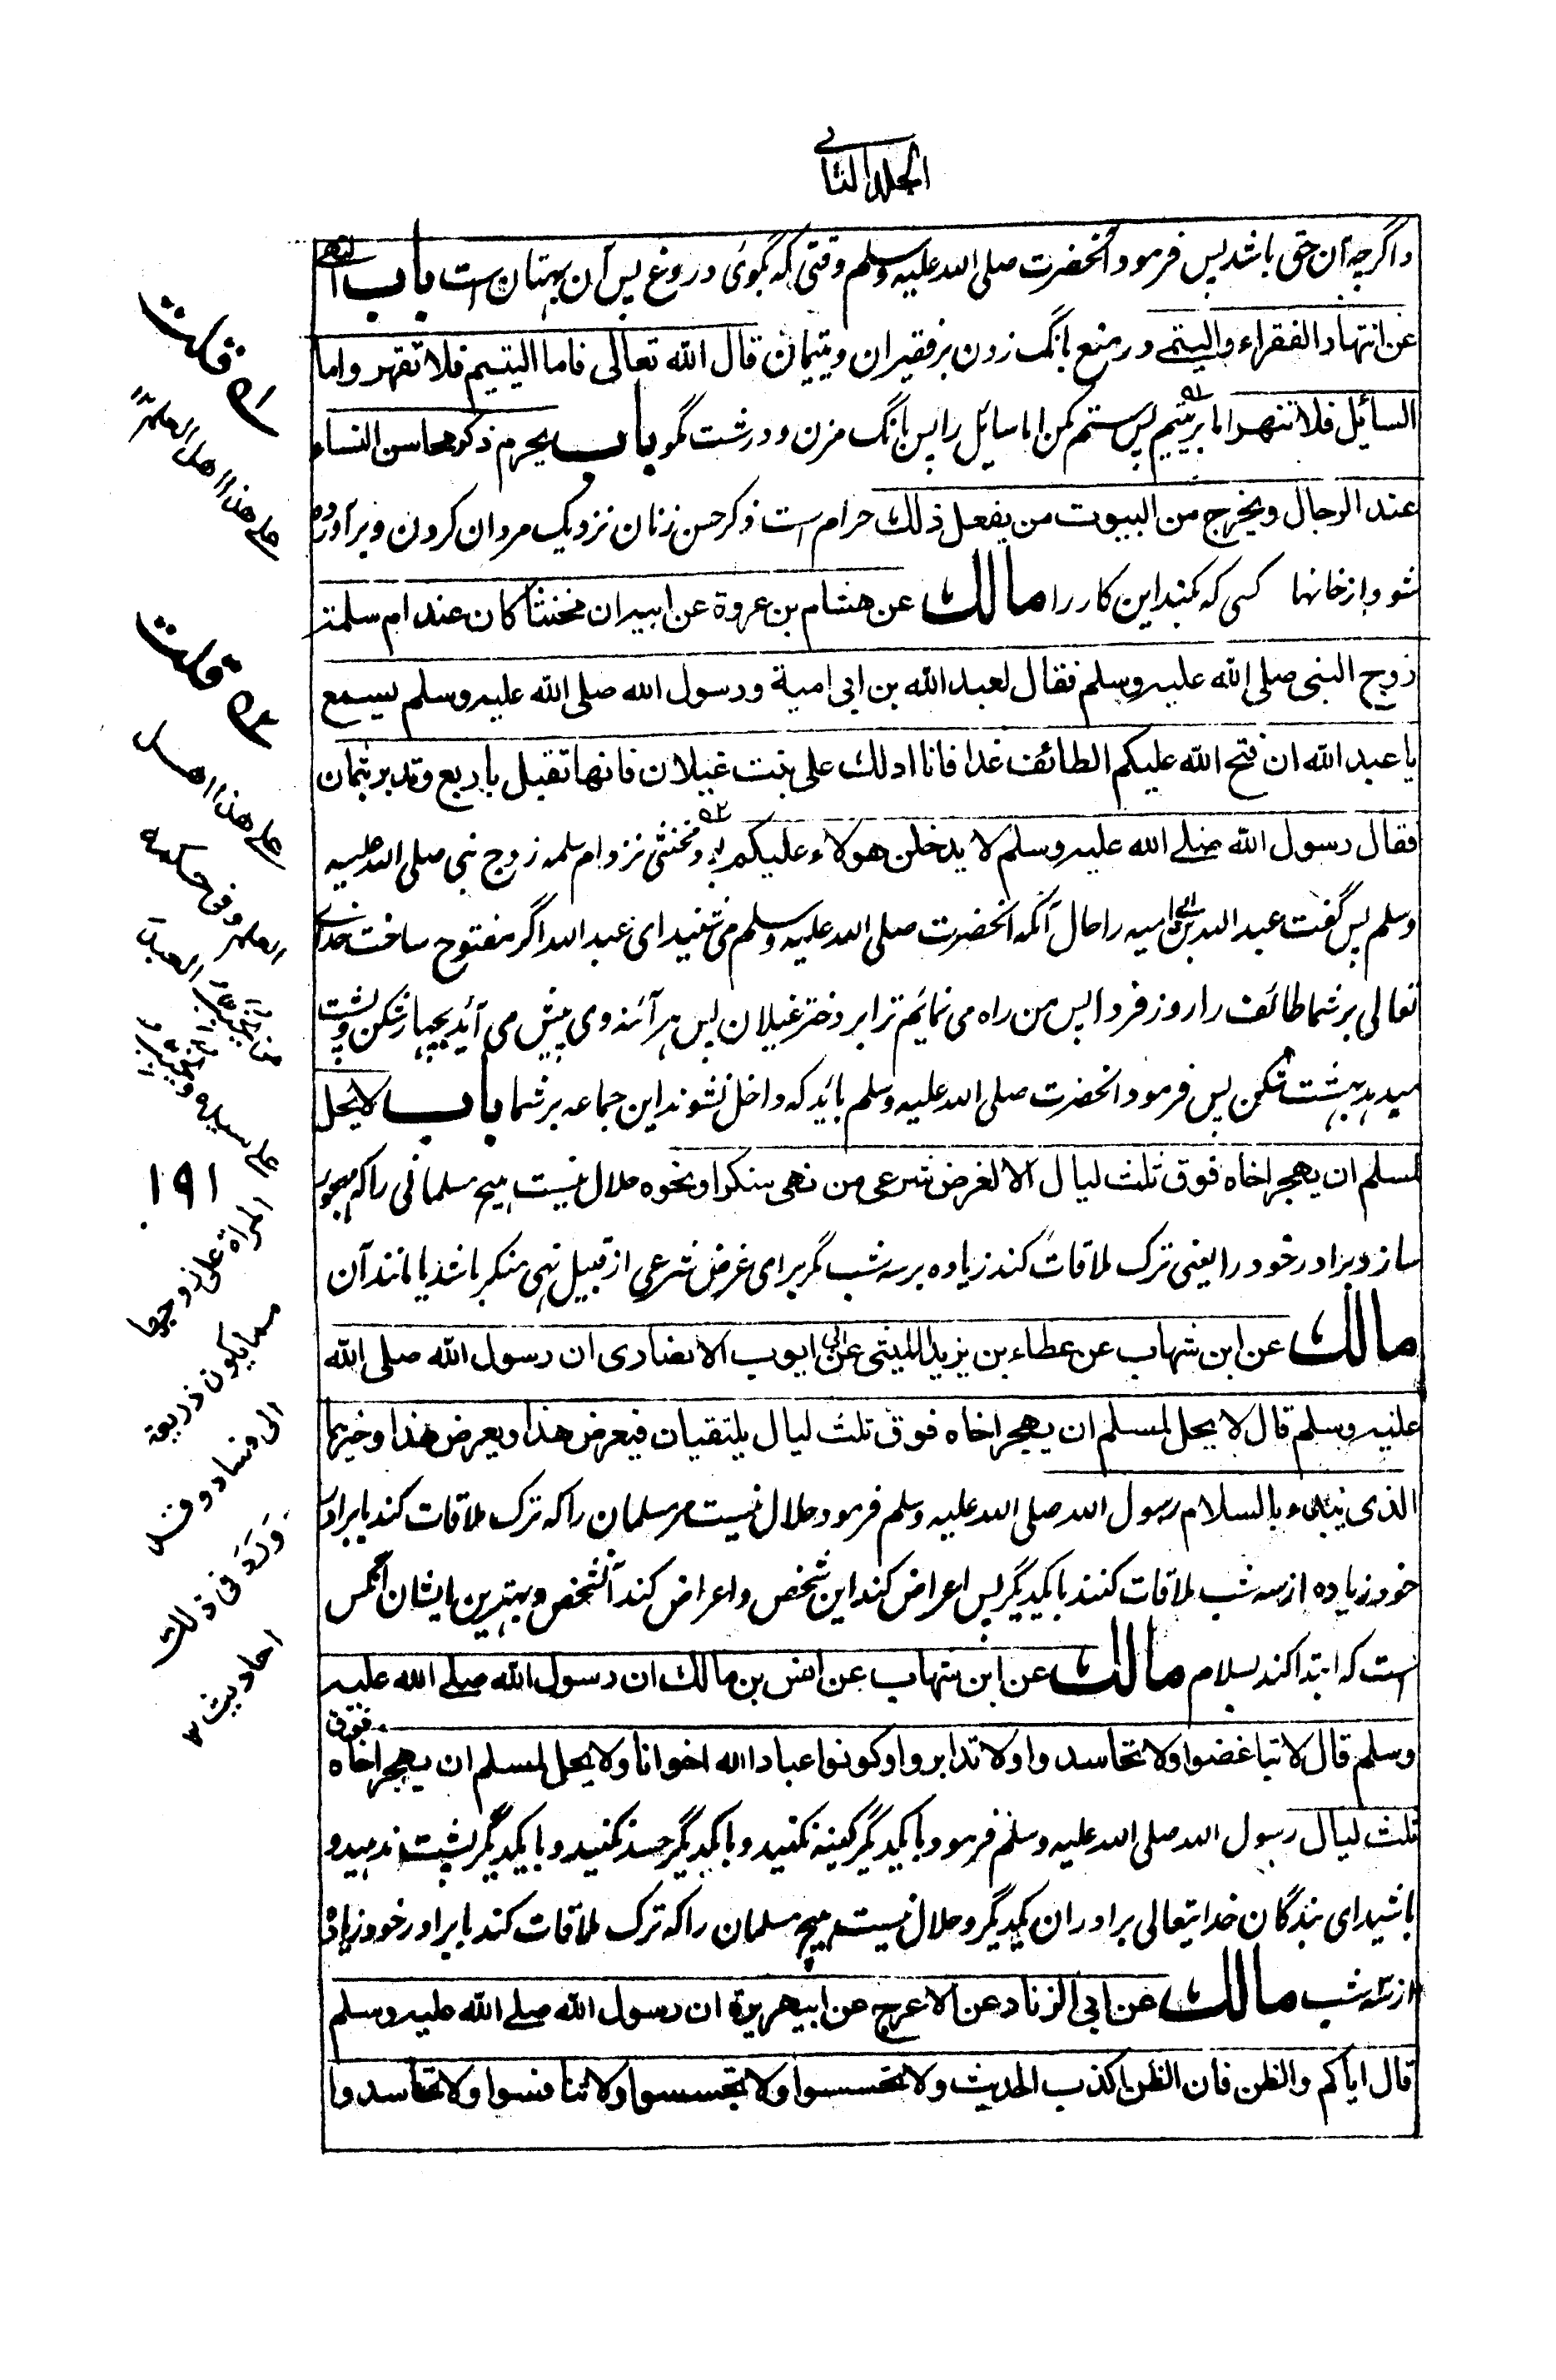 الجلد الثانی
و اگرچه آن حق باشد پس فرمود آنحضرت صلی الله علیه وسلم وقتی که بگوئی دروغ پس آن بهتان است باب النهی
عن انتهار الفقراء والیتمی در منع بانگ زدن بر فقیران و یتیمان قال الله تعالی فاما الیتیم فلا تقهر واما
السائل فلا تنهر اما بر یتیم پس ستم مکن اما سایل را پس بانگ مزن و درشت مگو باب یحرم ذکر محاسن النساء
عند الرجال ویخرج من البیوت من یفعل ذلک حرام است ذکر حسن زنان نزدیک مردان کردن و برآورده
شود از خانها کسی که بکند این کار را مالک عن هشام بن عروة عن ابیه ان مخنثا کان عند ام سلمة
زوج النبی صلی الله علیه وسلم فقال لعبد الله بن ابی امیة ورسول الله صلی الله علیه وسلم یسمع
یا عبد الله ان فتح الله علیکم الطائف غدا فانا ادلک علی بنت غیلان فانها تقبل باربع وتدبر بثمان
فقال رسول الله صلی الله علیه وسلم لا یدخلن هولاء علیکم بود مخنثی نزد ام سلمه زوج نبی صلی الله علیه
وسلم پس گفت عبد الله بن ابی امیه را حال آنکه آنحضرت صلی الله علیه وسلم می شنید ای عبد الله اگر مفتوح ساخت خدای
تعالی بر شما طائف را روز فردا پس من راه می نمائم ترا بر دختر غیلان پس هر آئنه وی پیش می آئد بچهار شکن و پشت
میدهد بهشت شکن پس فرمود آنحضرت صلی الله علیه وسلم بائد که داخل نشوند این جماعه بر شما باب لا یحل
لمسلم ان یهجر اخاه فوق ثلث لیال الا لغرض شرعی من نهی منکر او نحوه حلال نیست هیچ مسلمانی را که مهجور
سازد برادر خود را یعنی ترک ملاقات کند زیاده بر سه شب مگر برای غرض شرعی از قبیل نهی منکر باشد یا مانند آن
مالک عن ابن شهاب عن عطاء بن یزید اللیثی عن ابی ایوب الانصاری ان رسول الله صلی الله
علیه وسلم قال لا یحل لمسلم ان یهجر اخاه فوق ثلث لیال یلتقیان فیعرض هذا ویعرض هذا وخیرهما
الذی یبدء بالسلام رسول الله صلی الله علیه وسلم فرمود حلال نیست مر مسلمان را که ترک ملاقات کند با برادر
خود زیاده از سه شب ملاقات کنند با یکدیگر پس اعراض کند این شخص و اعراض کند آنشخص و بهترین ایشان آنکس
است که ابتدا کند بسلام مالک عن ابن شهاب عن انس بن مالک ان رسول الله صلی الله علیه
وسلم قال لا تباغضوا ولا تحاسدوا ولا تدابروا وکونوا عباد الله اخوانا ولا یحل لمسلم ان یهجر اخاه فوق
ثلث لیال رسول الله صلی الله علیه وسلم فرمود با یکدیگر کینه نکنید و با یکدیگر حسد نکنید و با یکدیگر پشت ندهید و
باشید ای بندگان خدایتعالی برادران یکدیگر و حلال نیست هیچ مسلمان را که ترک ملاقات کند با برادر خود زیاده
از سه شب مالک عن ابی الزناد عن الاعرج عن ابی هریرة ان رسول الله صلی الله علیه وسلم
قال ایاکم والظن فان الظن اکذب الحدیث ولا تحسسوا ولا تجسسوا ولا تنافسوا ولا تحاسدوا
۱ه قلت
علی هذا اهل العلم ۱۲
۲ه قلت
علی هذا اهل
العلم وفی حکمه
۱۹۱
المراة علی زوجها
مما یکون ذریعة
الی فساد وقد
ورد فی ذلک
احادیث ۱۲